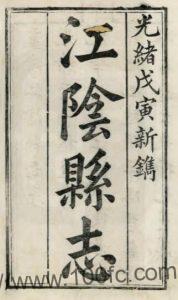 光緒戊寅新鐫
江陰縣志
www.100fc.com